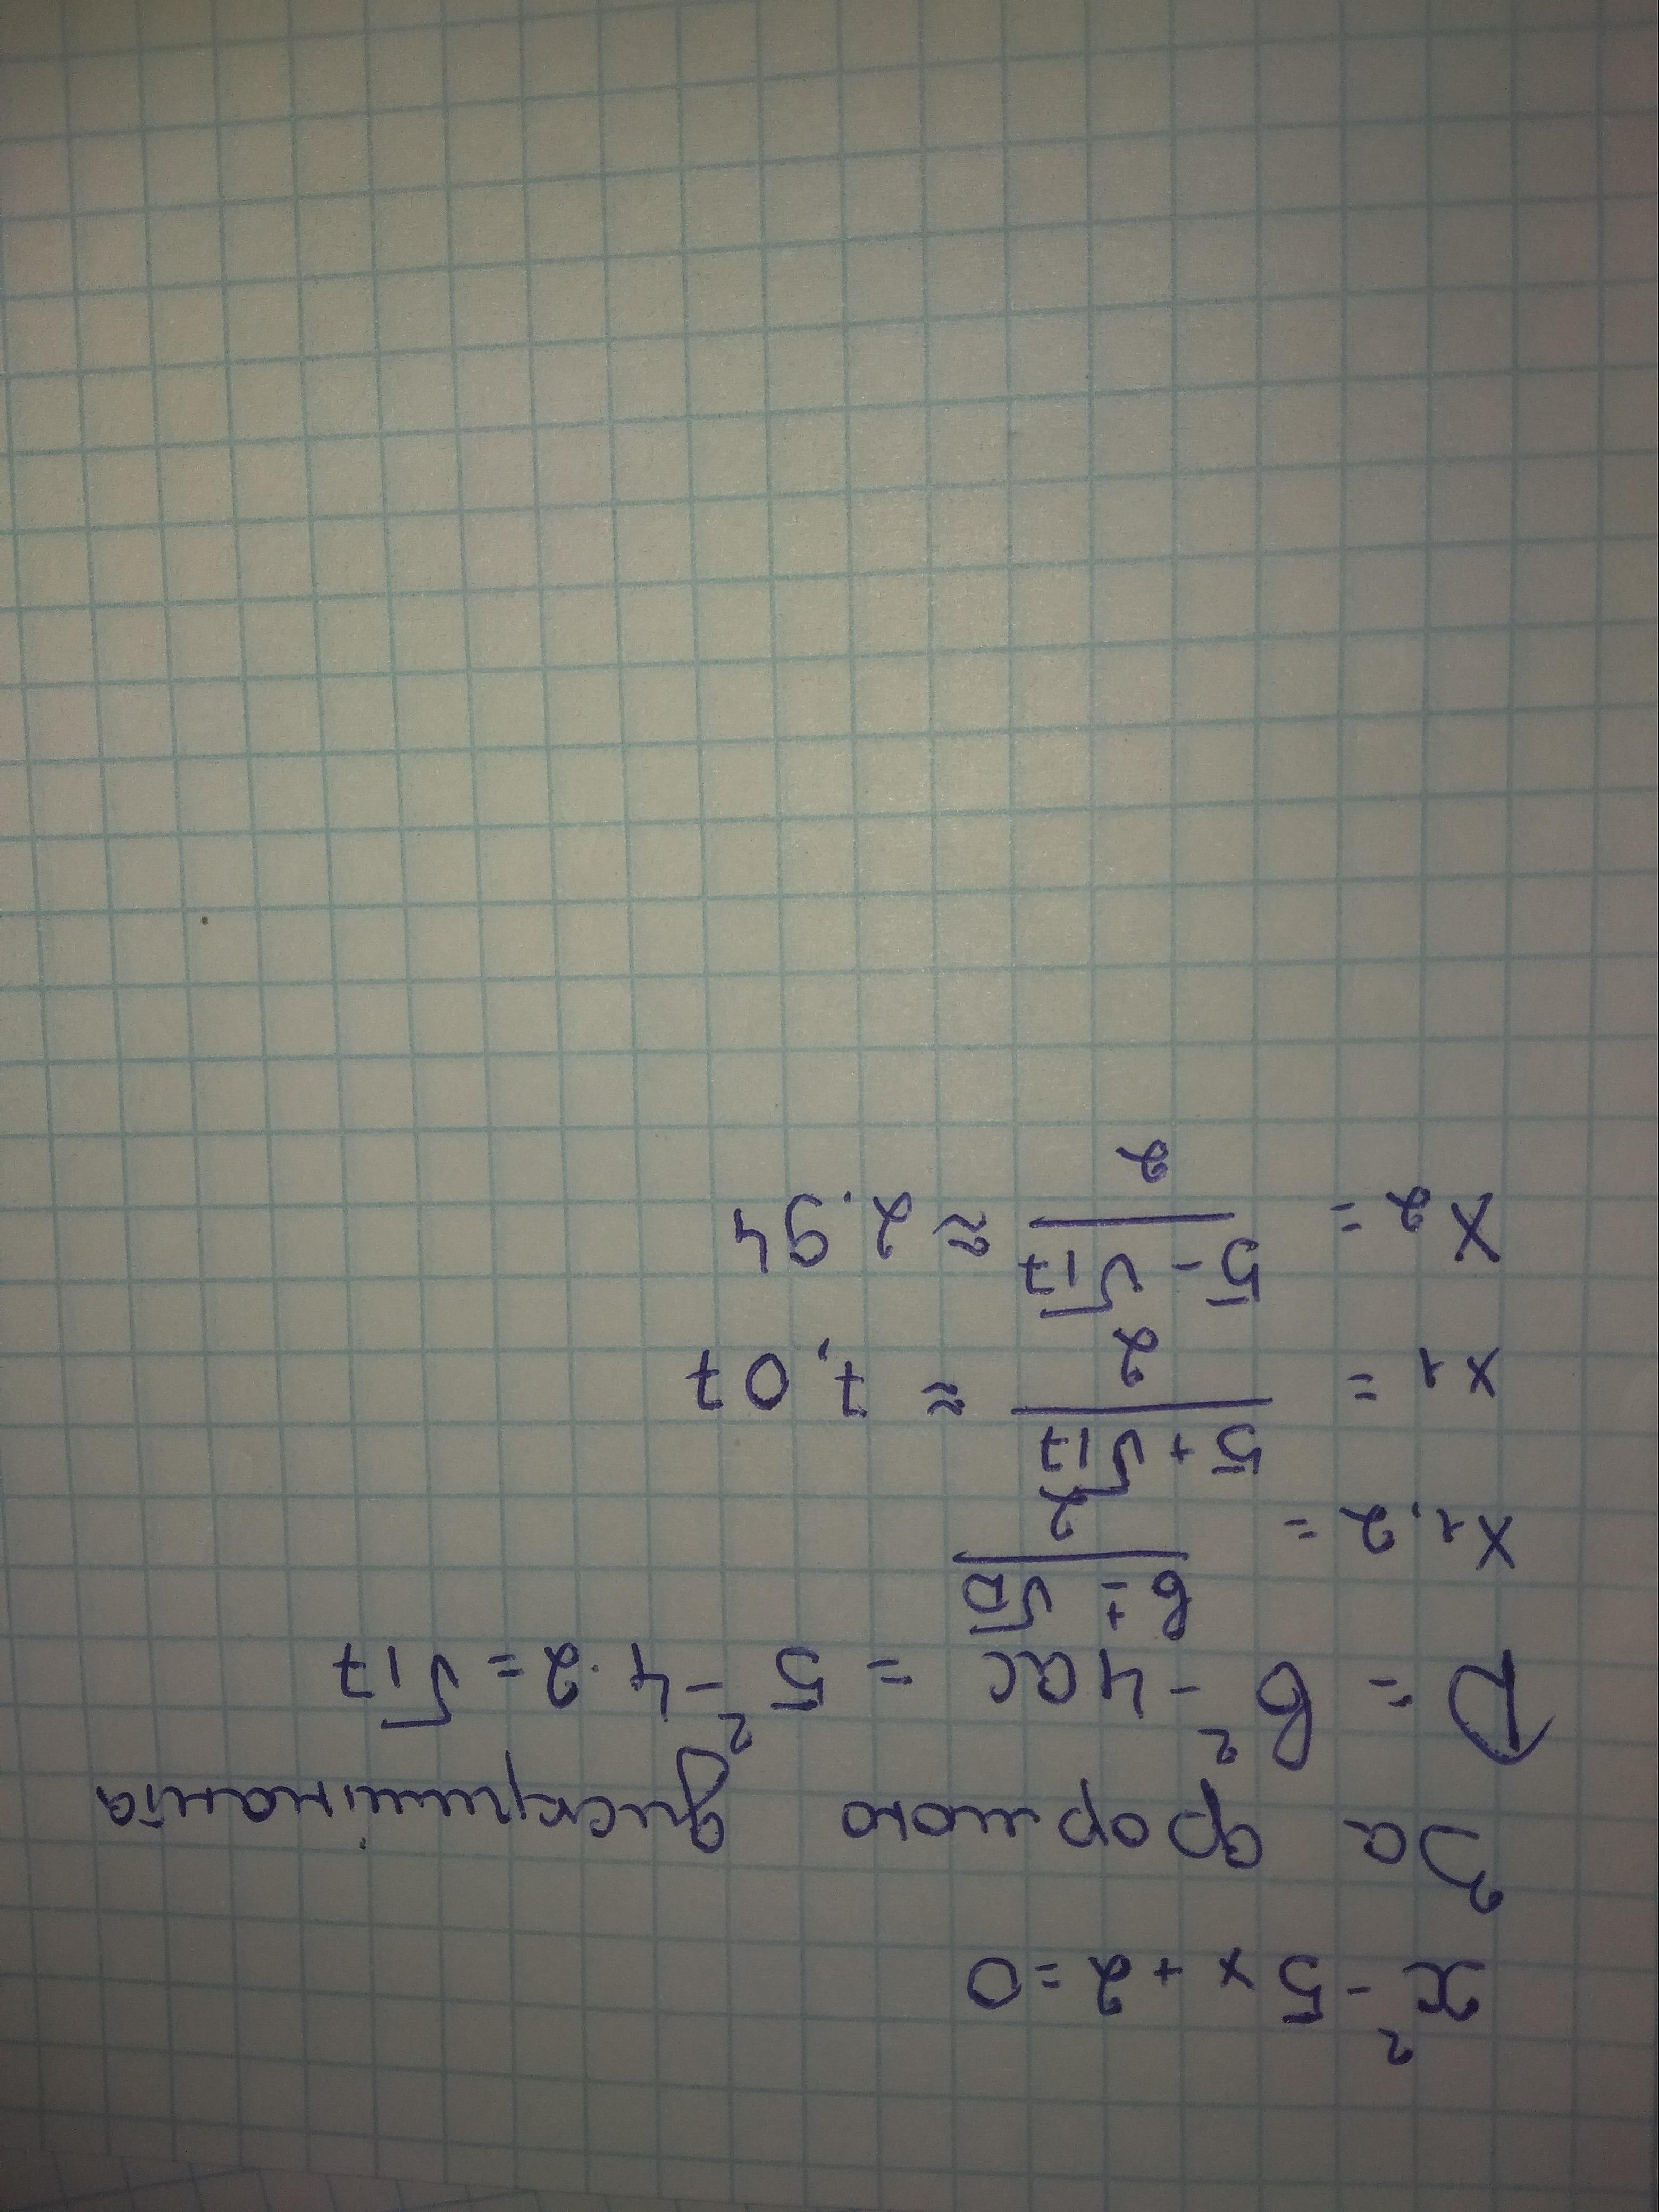 x² - 5x + 2 = 0
За формою дискримінанта
D = b² - 4ac = 5² - 4·2 = √17
x1,2 = (b ± √D) / 2
x1 = (5 + √17) / 2 ≈ 7,07
x2 = (5 - √17) / 2 ≈ 2.94